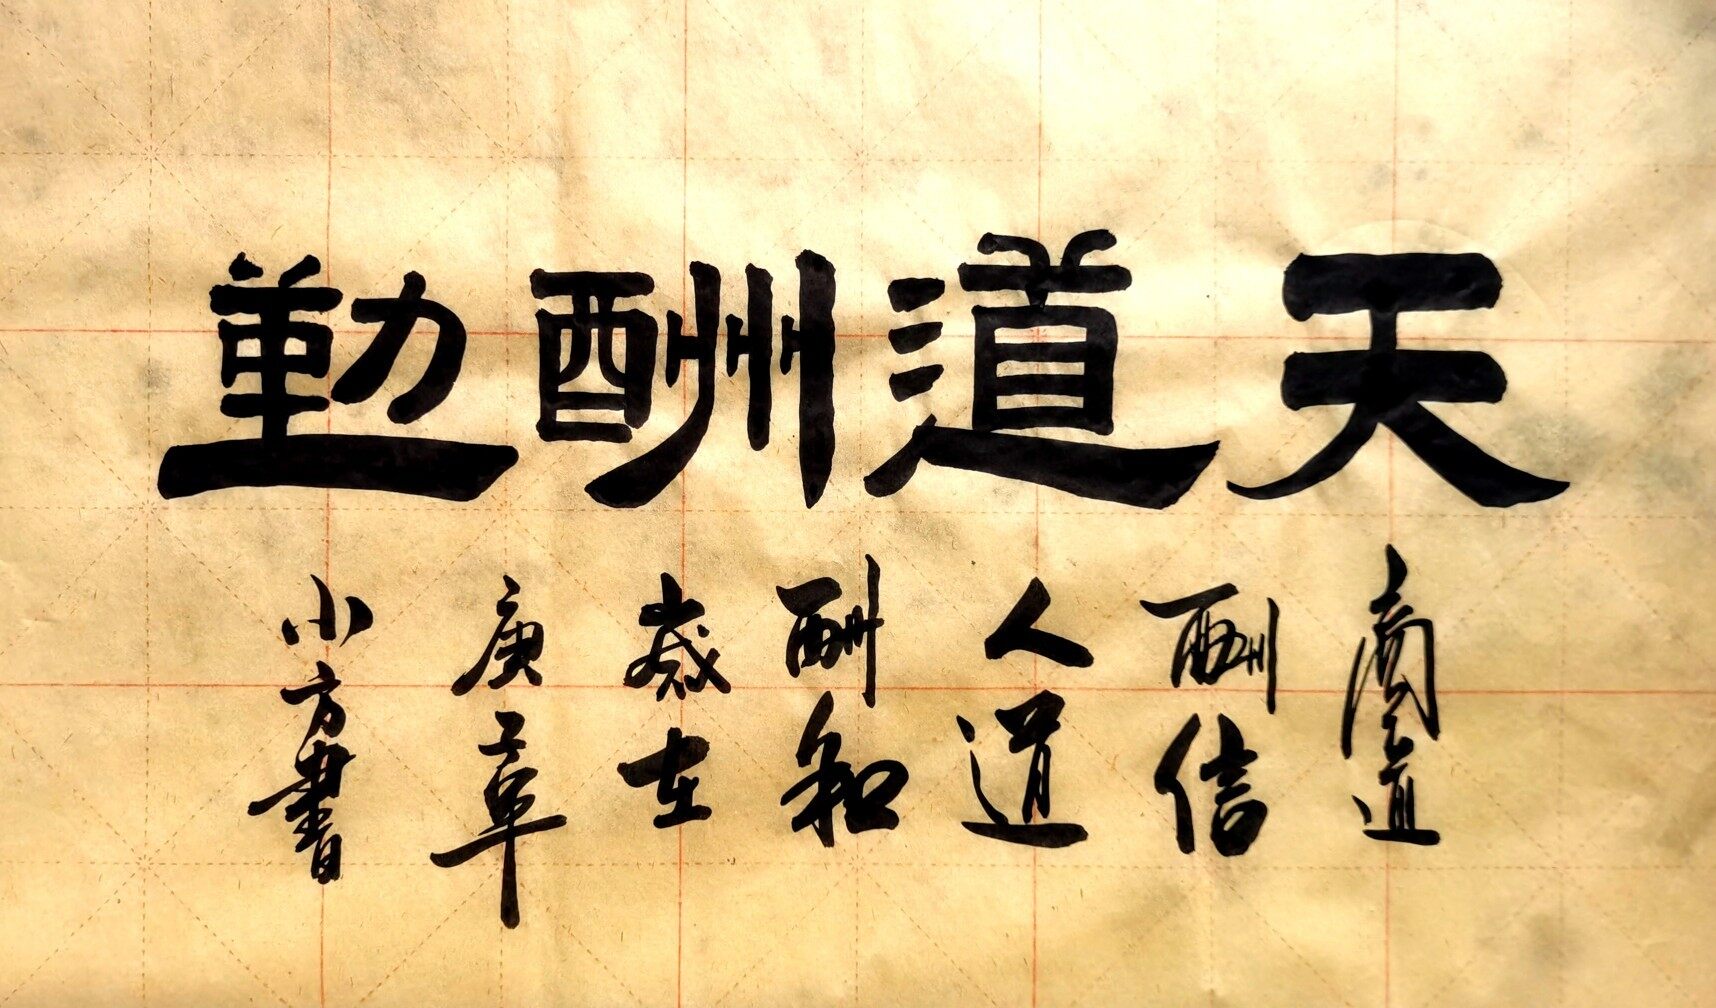 天道酬勤
商道
酬信
人道
酬和
歲在
庚
小方書